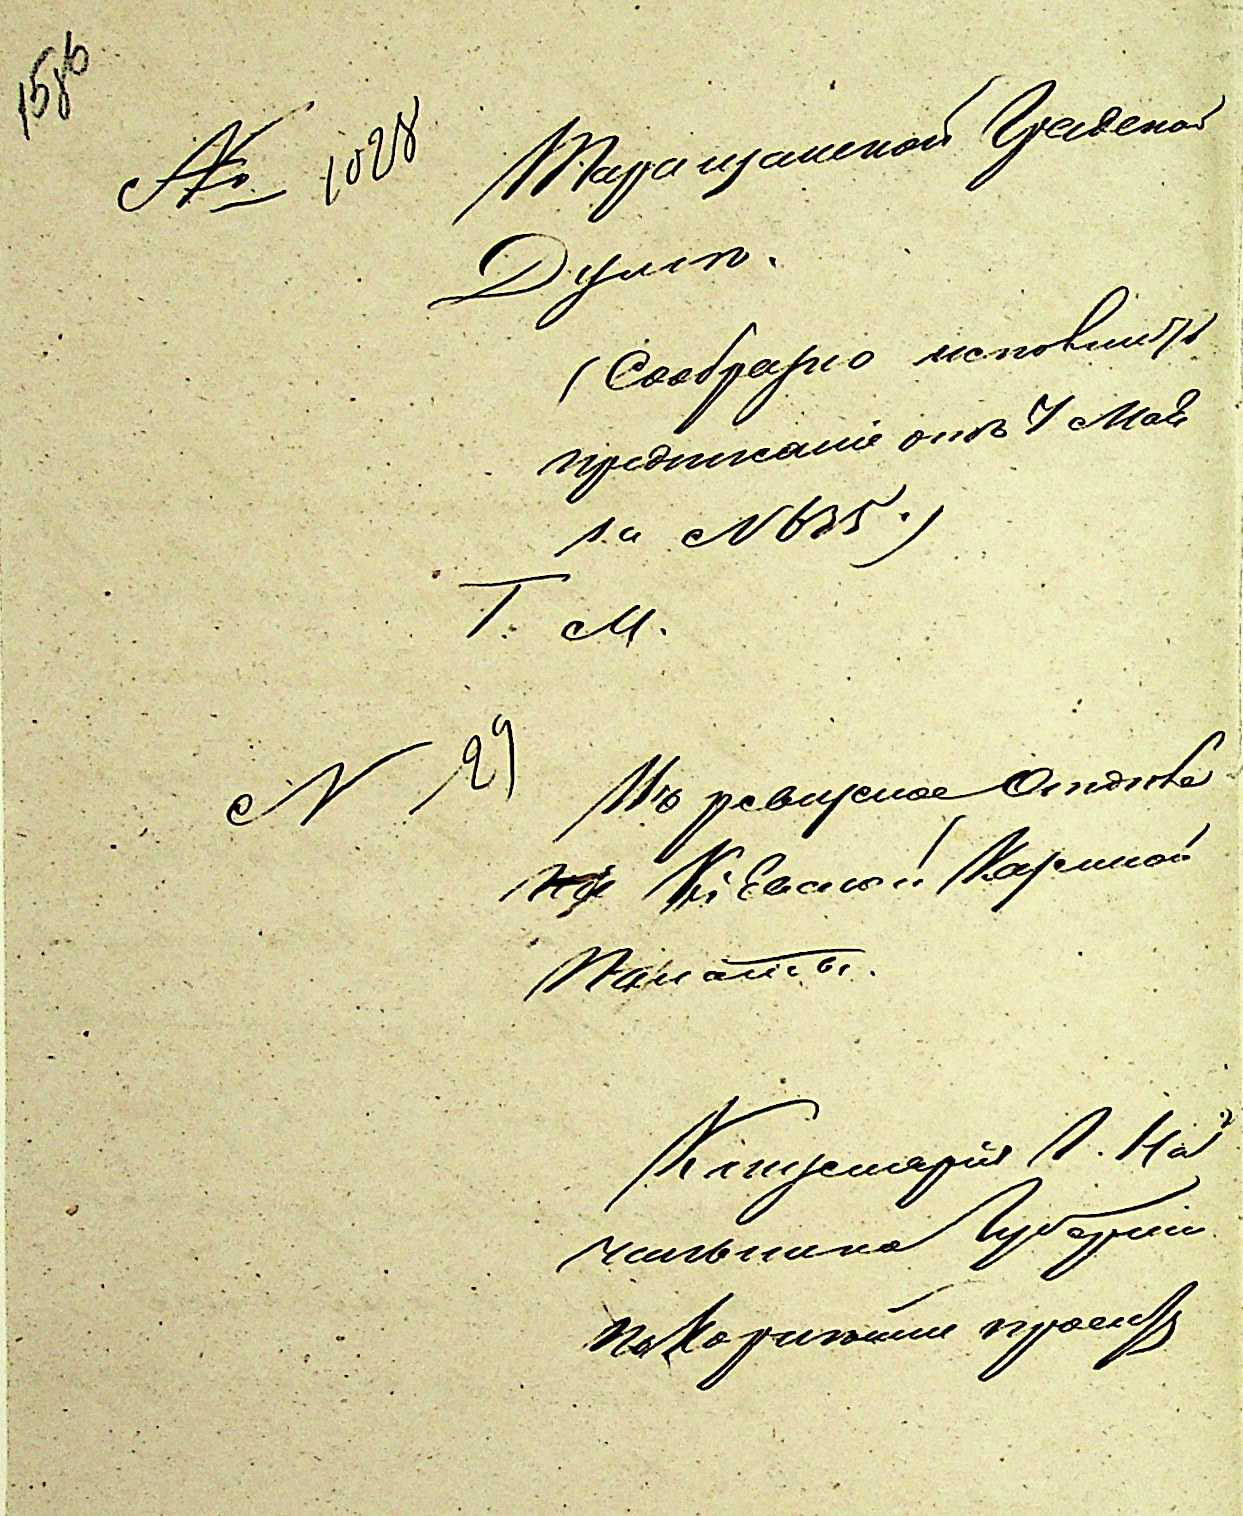 № 1028 Таращанской Градской
Думѣ.
(Сообразно
предписаніе отъ 7 Мая
за № 635.)
Т. М.
№ 29 Въ ревизское Отдѣле
Кіевской Казенной
Палаты.
Канцелярія Г. На
чальника Губерніи
покорнѣйше проситъ